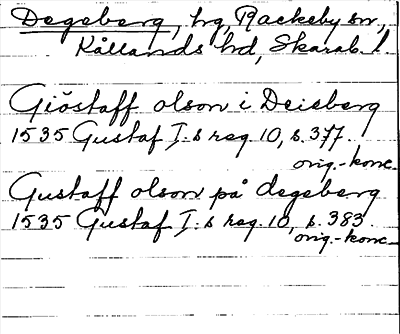 Degeberg, hg Rackeby sn,
Kållands hd, Skarab. l.
Giöstaff olson i Deieberg
1535 Gustaf I:s reg. 10, s. 377.
orig.-konc.
Gustaff olson på degeberg
1535 Gustaf I:s reg. 10, s. 383.
orig.-konc.